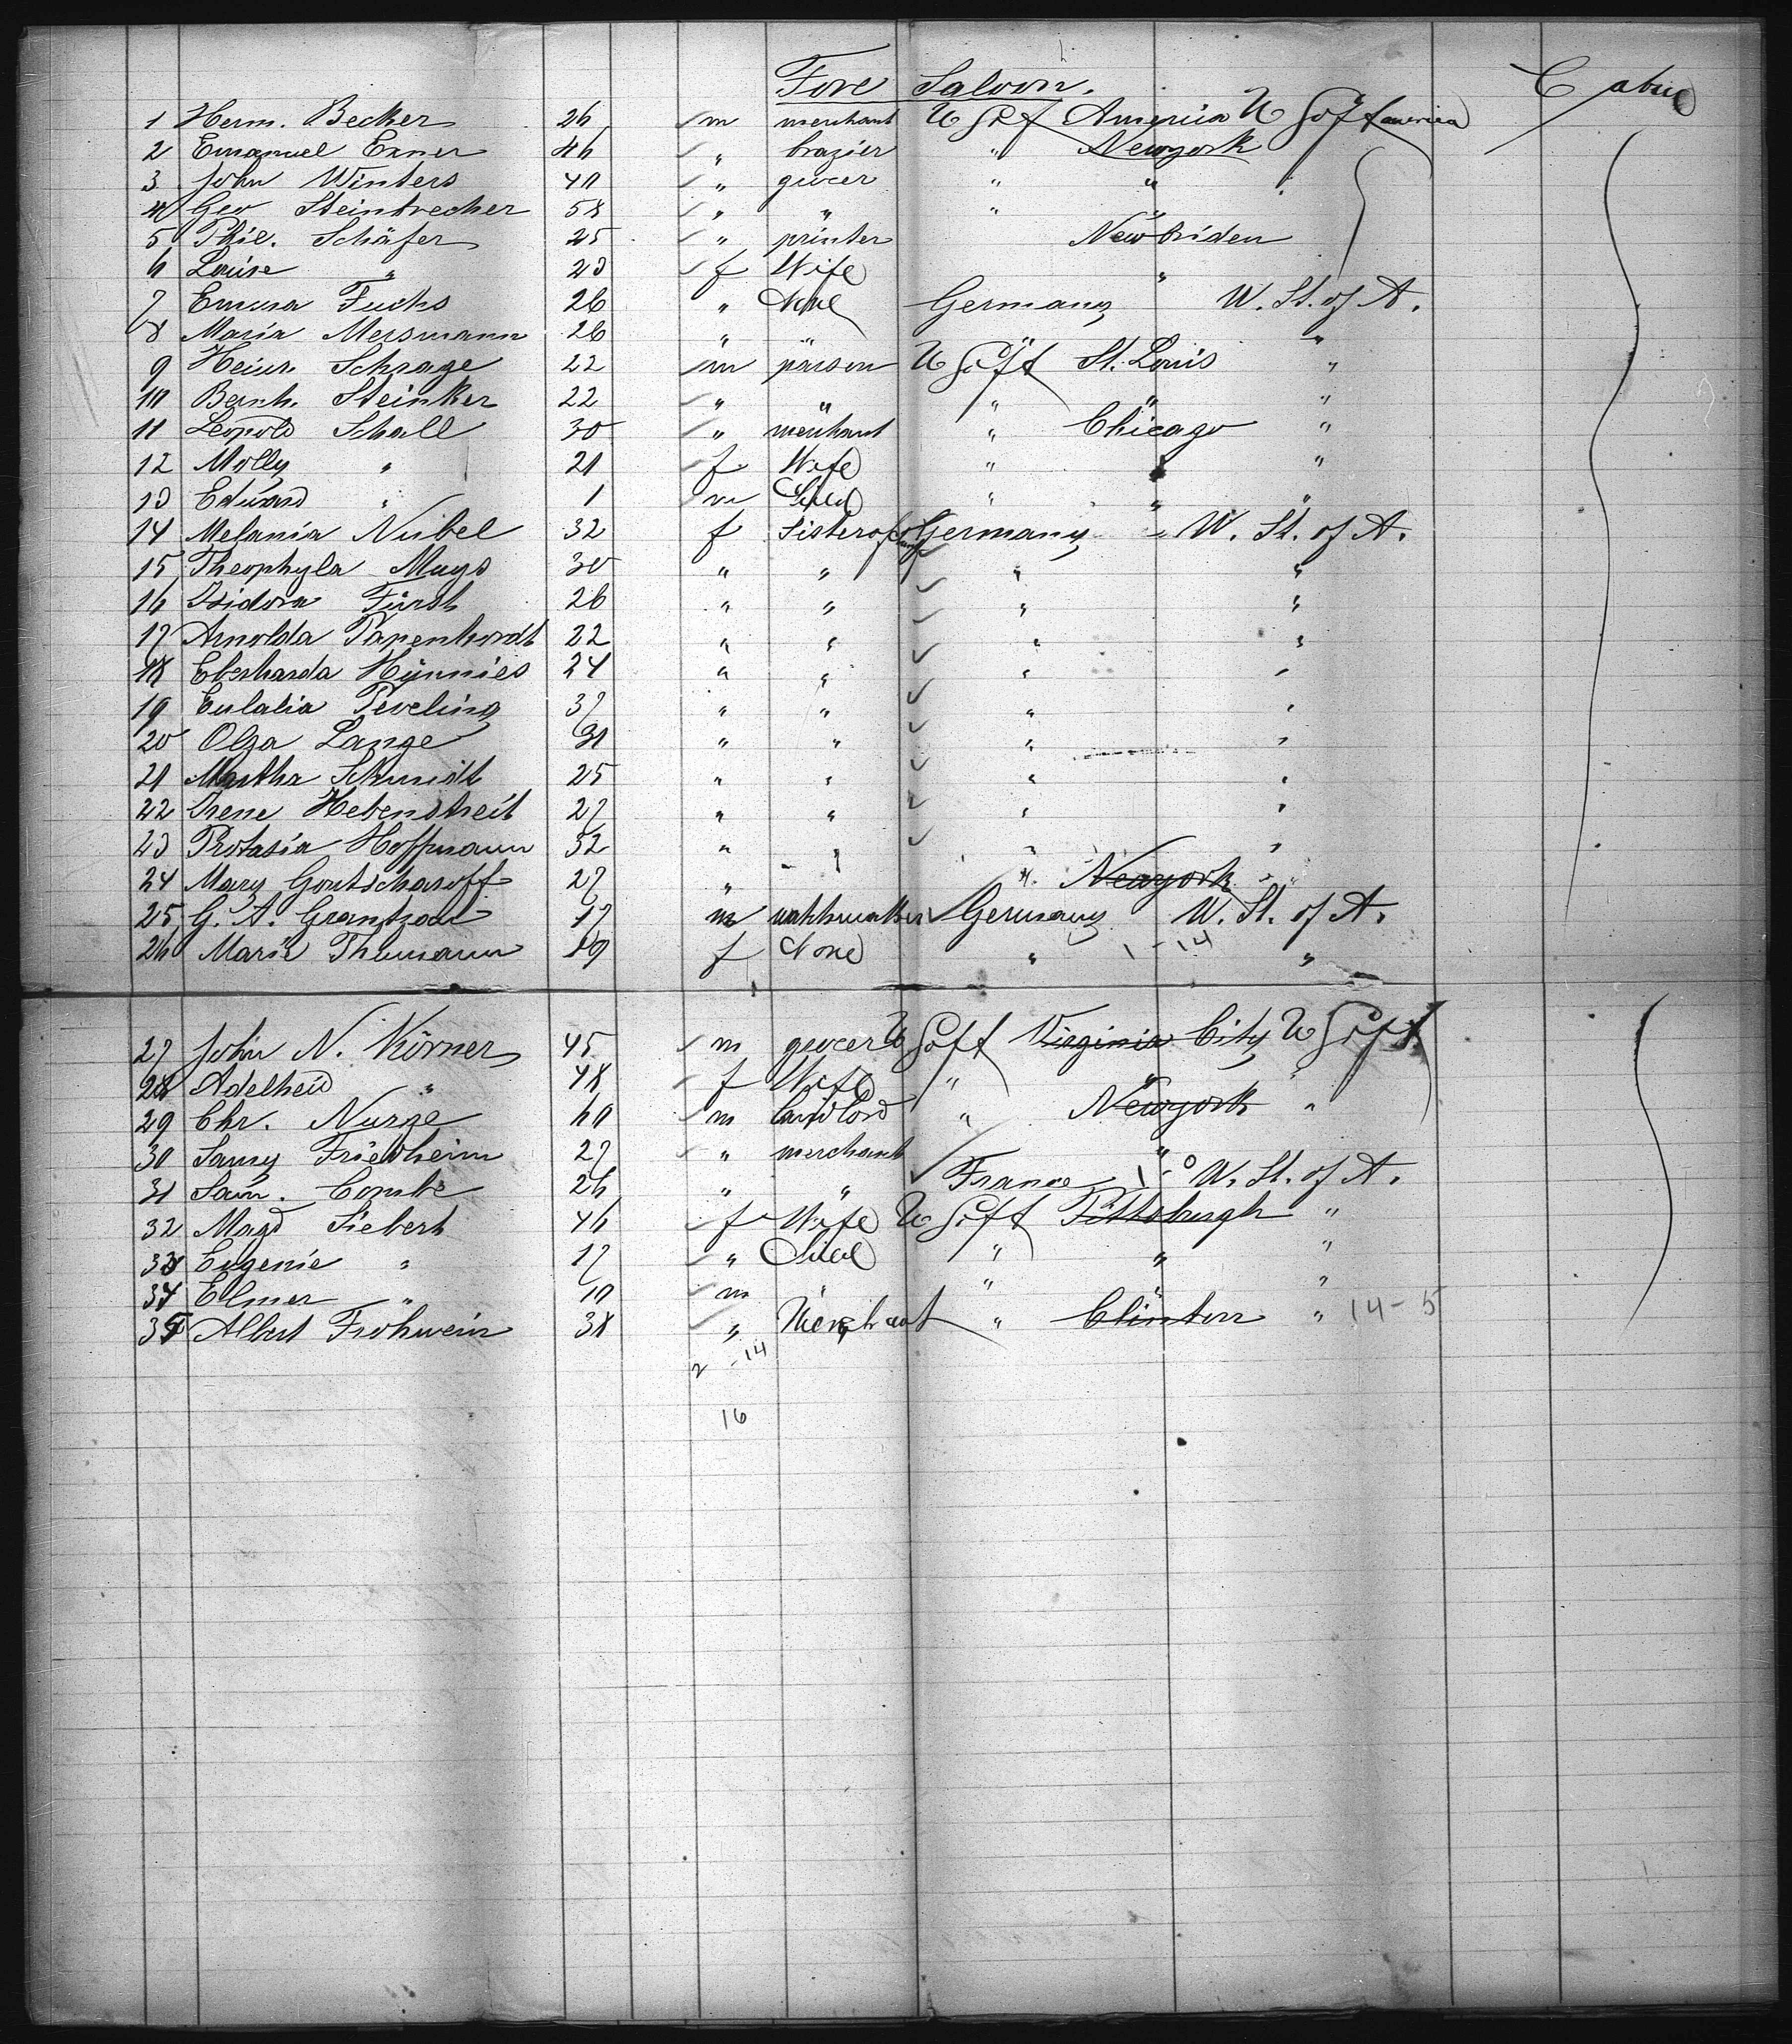 Fore Saloon. Cabin
1 Herm. Becker 26 m merchant U S of America U S of America
2 Emanuel Exner 46 " brazier " Newyork
3 John Winters 40 " grocer " "
4 Geo Steinbrecher 58 " " " "
5 Phil. Schäfer 25 " printer Newbriden
6 Louise " 23 f Wife "
7 Emma Fuchs 26 " None Germany U. St. of A.
8 Maria Mersmann 26 " " " "
9 Heinr. Schrage 22 m parson U S of A St. Louis "
10 Bernh. Steinker 22 " " " " "
11 Leopold Schall 30 " merchant " Chicago "
12 Molly " 21 f Wife " " "
13 Eduard " 1 m Child " " "
14 Melania Nubel 32 f Sister of Germany " U. St. of A.
15 Theophyla Muys 30 " " " "
16 Isidora Fürst 26 " " " "
17 Arnolda Papenhordt 22 " " " "
18 Eberharda Hünnies 24 " " " "
19 Eulalia Peveling 37 " " " "
20 Olga Lange 31 " " " "
21 Martha Schmidt 25 " " " "
22 Irene Hebenstreit 27 " " " "
23 Protasia Hoffmann 32 " " " "
24 Mary Gontscharoff 27 " " " Newyork "
25 G. A. Grantzow 17 m Germany U. St. of A.
26 Marie Thumann 19 f None " 1-14 "
27 John N. Körner 45 m grocer U S of A Virginia City U S of A
28 Adelheid " 48 f Wife " " "
29 Chr. Nurge 60 m landlord " Newyork "
30 Samy Friedheim 27 " merchant "
31 Sam. Combe 26 " " France U. St. of A.
32 Magd Siebert 46 f Wife U S of A Pittsburgh "
33 Eugenie " 17 " Child " " "
34 Elmer " 10 m " " " "
35 Albert Frohwein 38 " Merchant " Clinton " 14-5
2 - 14
16